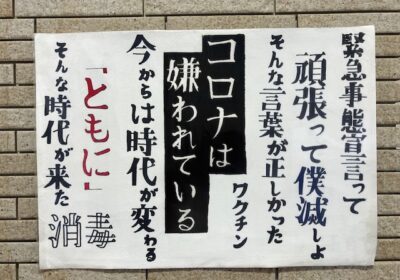 緊急事態宣言って
頑張って僕滅しよ
そんな言葉が正しかった
ワクチン
コロナは
嫌われている
今からは時代が変わる
「ともに」
そんな時代が来た
消毒